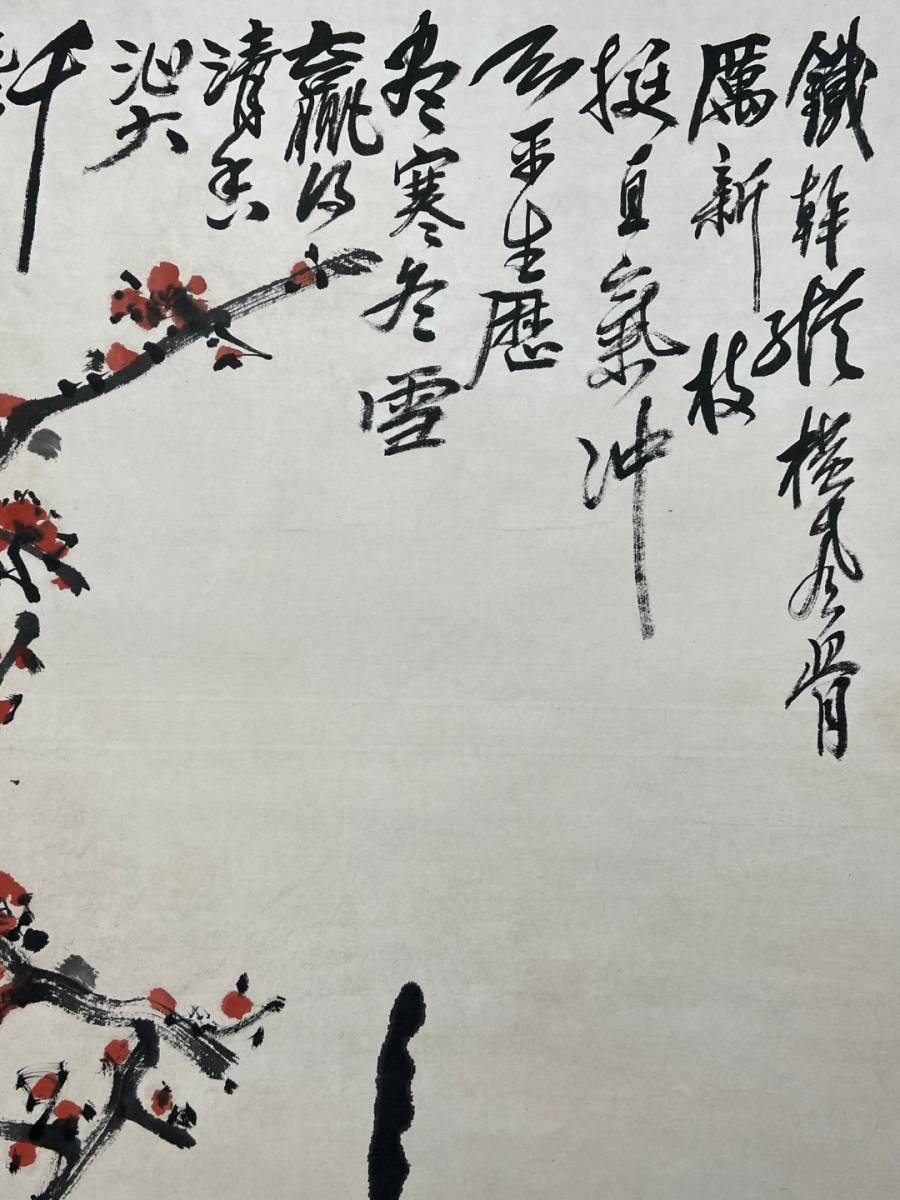 鐵幹縱橫風骨
厲新枝
挺直氣沖
天平生歷
盡寒冬雪
贏得
清香
沁大
千